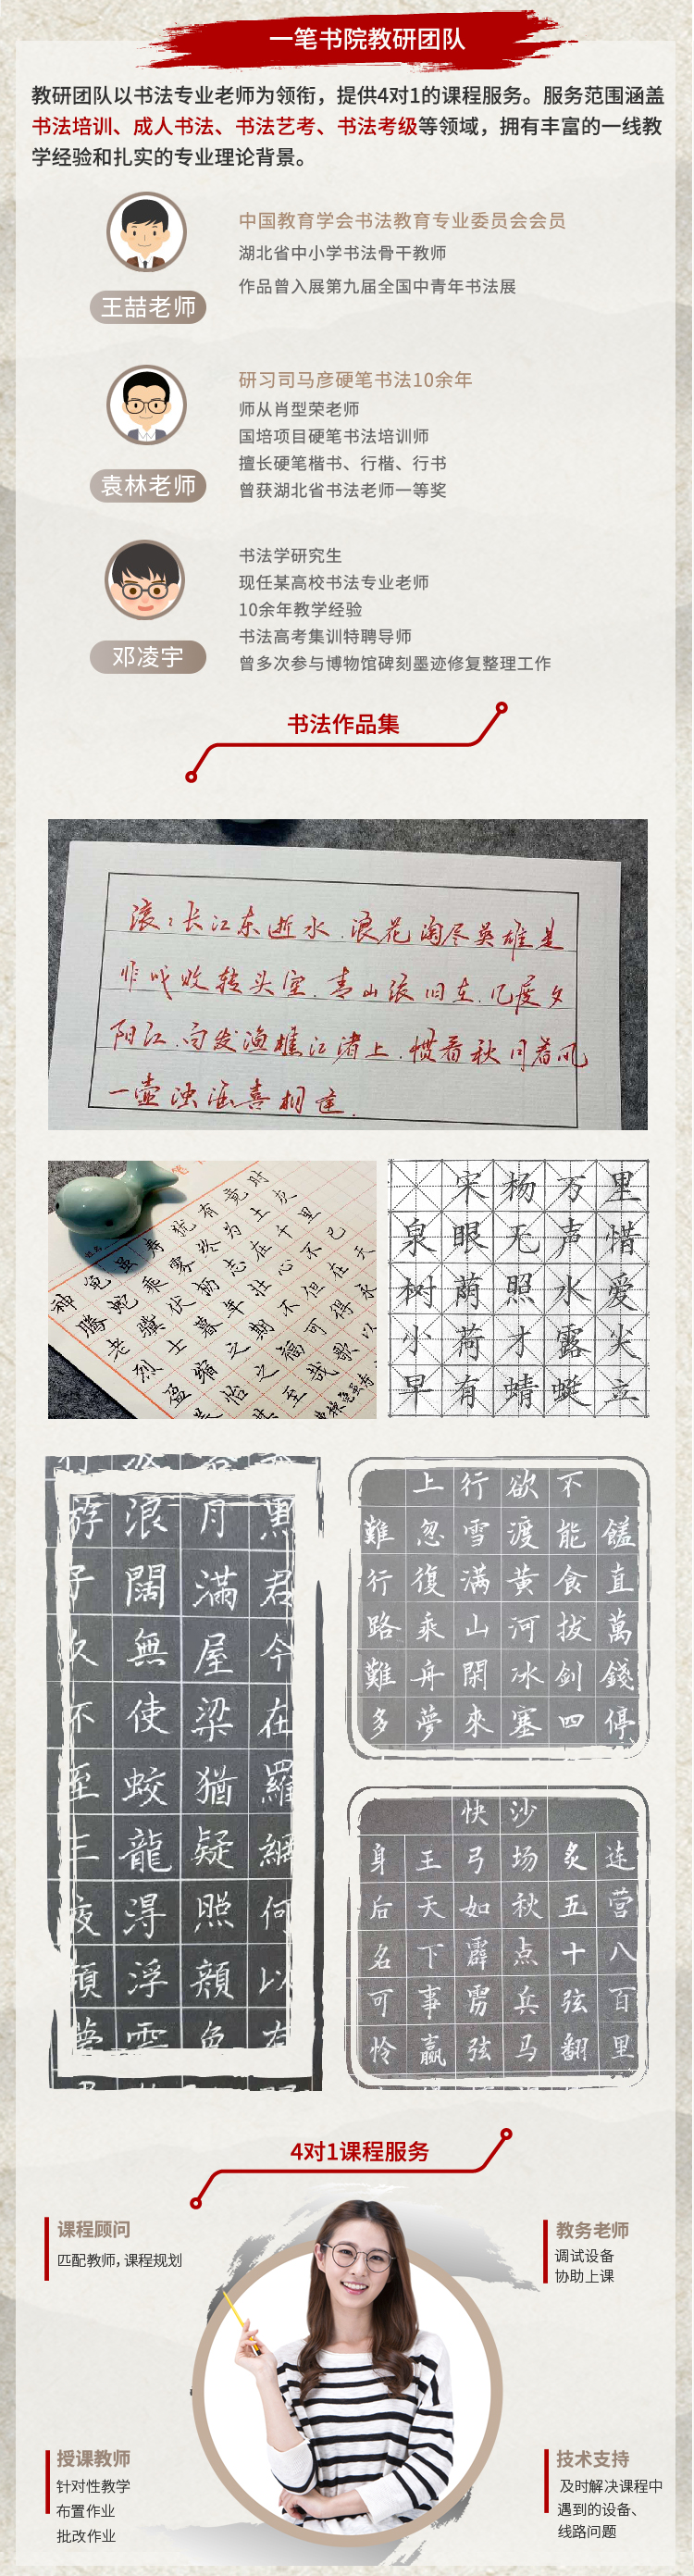 一笔书院教研团队
教研团队以书法专业老师为领衔，提供4对1的课程服务。服务范围涵盖
书法培训、成人书法、书法艺考、书法考级等领域，拥有丰富的一线教
学经验和扎实的专业理论背景。
中国教育学会书法教育专业委员会会员
湖北省中小学书法骨干教师
作品曾入展第九届全国中青年书法展
王喆老师
研习司马彦硬笔书法10余年
师从肖型荣老师
国培项目硬笔书法培训师
擅长硬笔楷书、行楷、行书
曾获湖北省书法老师一等奖
袁林老师
书法学研究生
现任某高校书法专业老师
10余年教学经验
书法高考集训特聘导师
曾多次参与博物馆碑刻墨迹修复整理工作
邓凌宇
书法作品集
滚滚长江东逝水 浪花淘尽英雄 是
非成败转头空 青山依旧在 几度夕
阳红 白发渔樵江渚上 惯看秋月春风
一壶浊酒喜相逢
神龟虽寿 犹有竟时
腾蛇乘雾 终为土灰
老骥伏枥 志在千里
烈士暮年 壮心不已
盈缩之期 不但在天
养怡之福 可得永
宋杨万里
泉眼无声惜
树荫照水爱
小荷才露尖
早有蜻蜓立
黑君今在羅網何以有
月滿屋梁猶疑照顏色
浪闊無使蛟龍得浮雲
游子久不至三夜頻夢
饈直萬錢停
不能食拔劍四
欲渡黄河冰塞
行雪滿山閑來
上忽復乘舟夢
難行路難多
连营八百里
炙五十弦翻
沙场秋点兵马
快弓如霹雳弦
王天下事赢
身后名可怜
4对1课程服务
课程顾问
匹配教师，课程规划
教务老师
调试设备
协助上课
授课教师
针对性教学
布置作业
批改作业
技术支持
及时解决课程中
遇到的设备、
线路问题